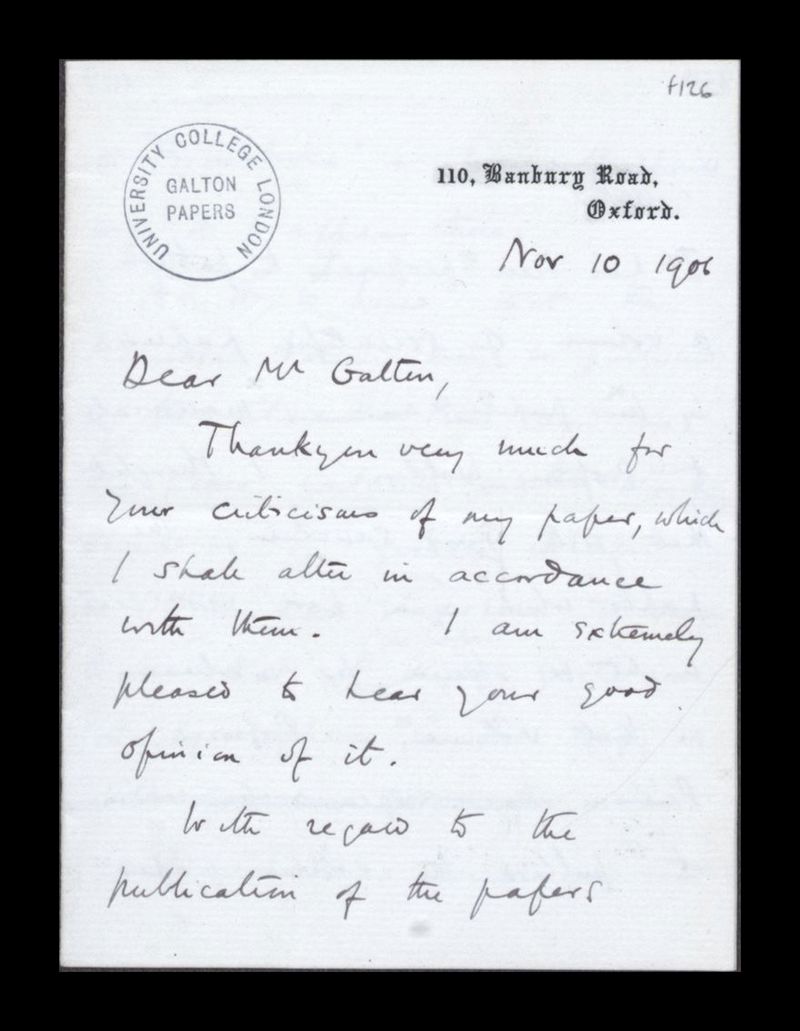 f126
UNIVERSITY COLLEGE LONDON
GALTON
PAPERS
110, Banbury Road,
Oxford.
Nov 10 1906
Dear Mr Galton,
Thank you very much for
your criticisms of my paper, which
I shall alter in accordance
with them. I am extremely
pleased to hear your good
opinion of it.
With regard to the
publication of the papers